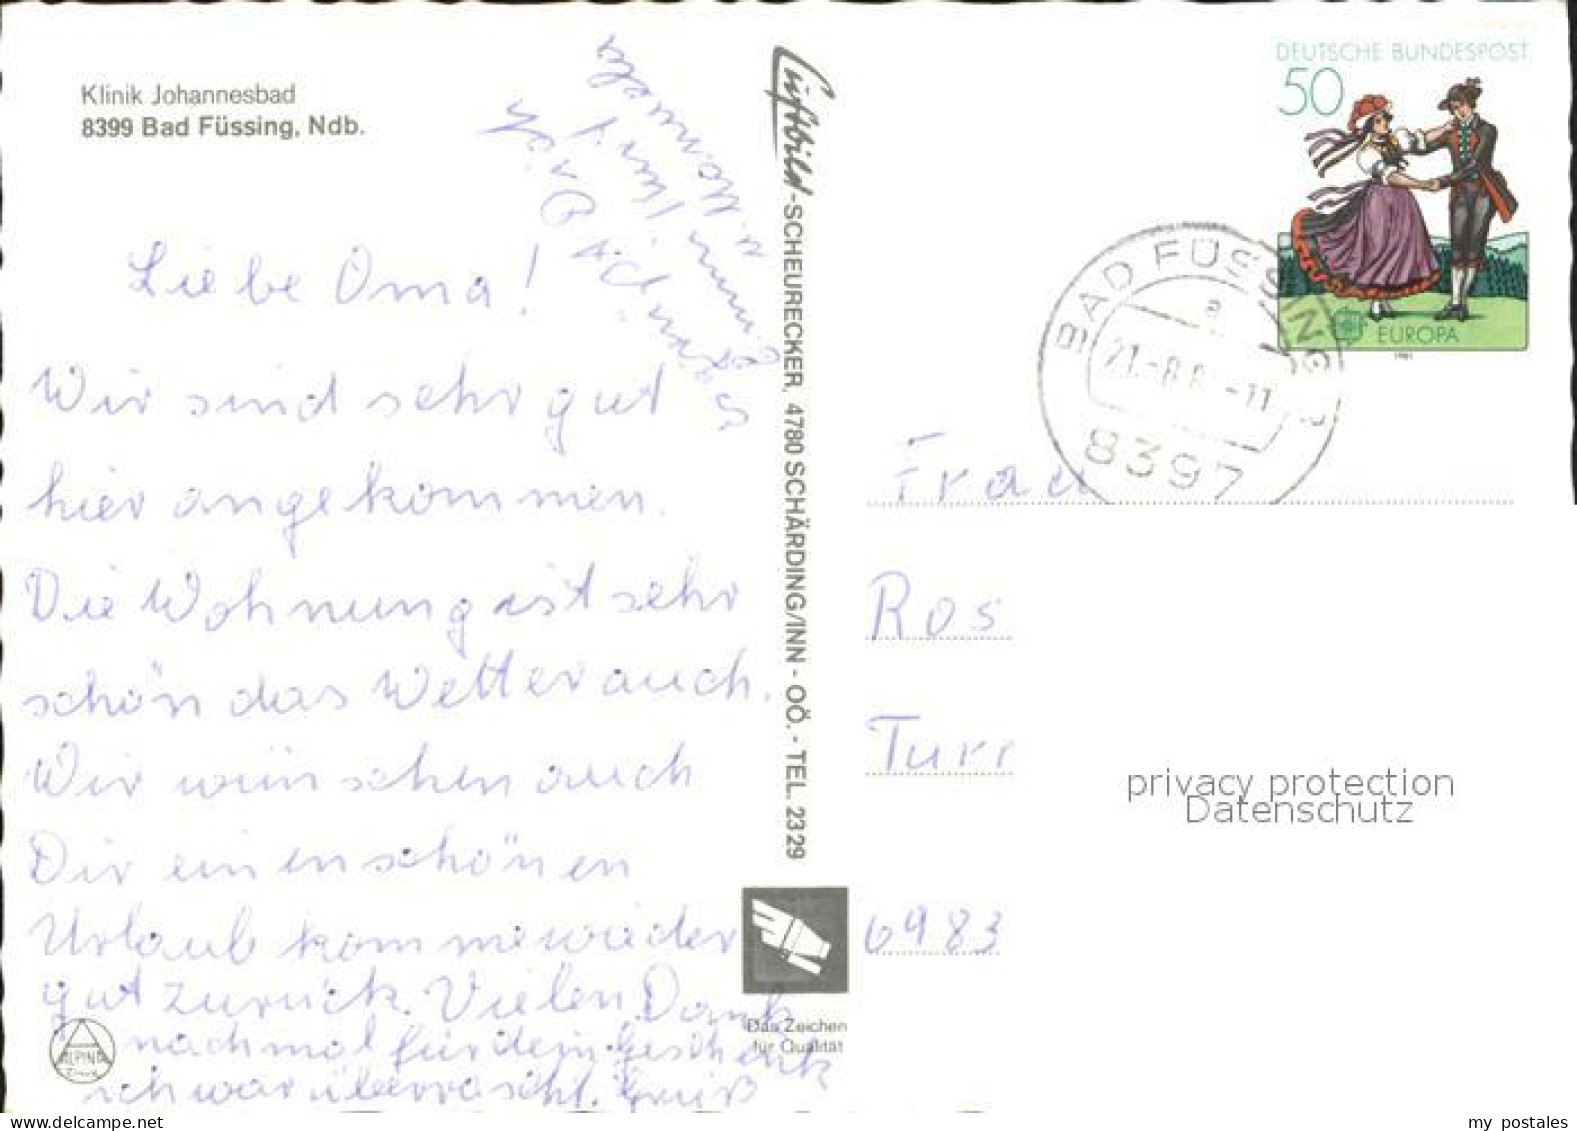 Klinik Johannesbad
8399 Bad Füssing, Ndb.
Liebe Oma!
Wir sind sehr gut
hier angekommen.
Die Wohnung ist sehr
schön das Wetter auch.
Wir wünschen auch
Dir einen schönen
Urlaub komme wieder
gut zurück. Vielen Dank
nachmal für dein Geschenk
ich war überrascht. Gruß
Luftbild-SCHEURECKER, 4780 SCHÄRDING/INN - OÖ. - TEL. 2329
Das Zeichen
für Qualität
ALPINA
DEUTSCHE BUNDESPOST
50
EUROPA
1981
BAD FÜSSING
a
21.-8.8 -11
8397
Frau
Ros
Turr
6983
privacy protection
Datenschutz
my postales